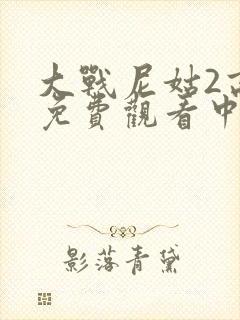 大戰尼姑2高
免費觀看中
影落青黛